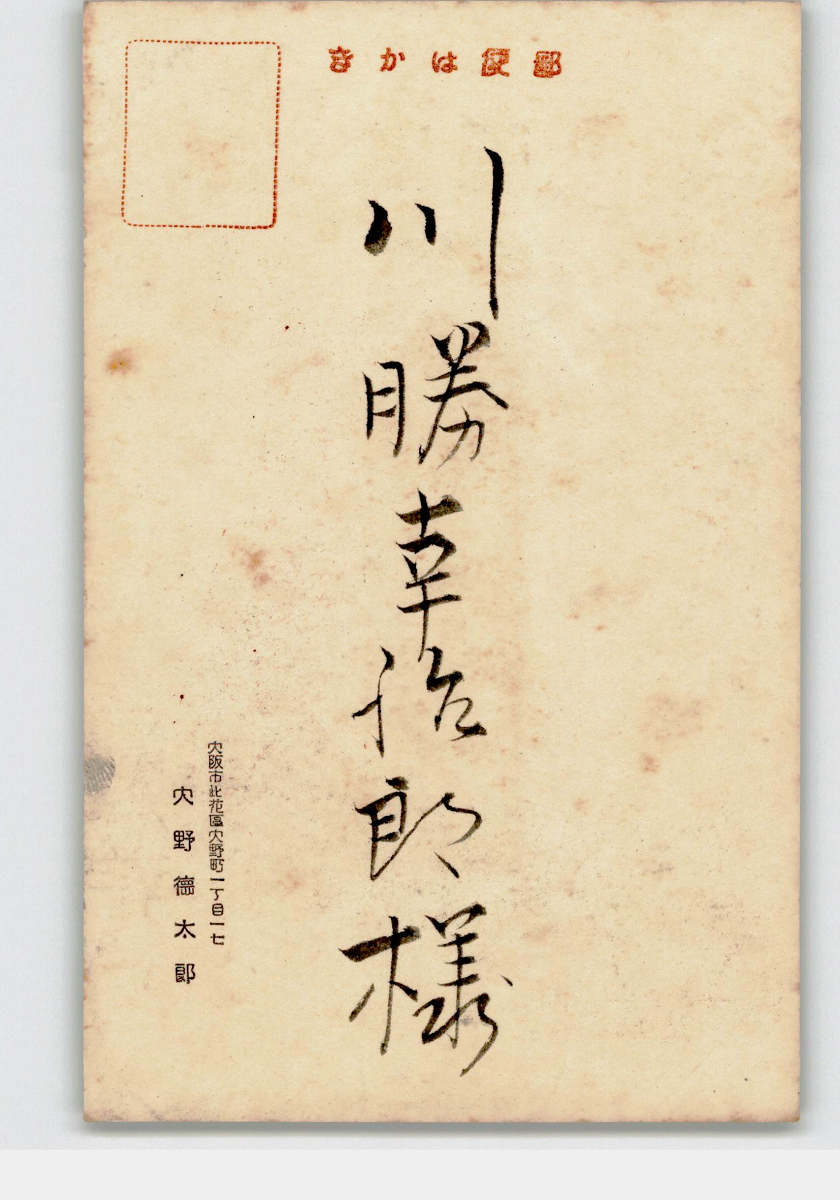 郵便はかき
川勝幸治郎様
大阪市此花區大野町一丁目一七
大野德太郎